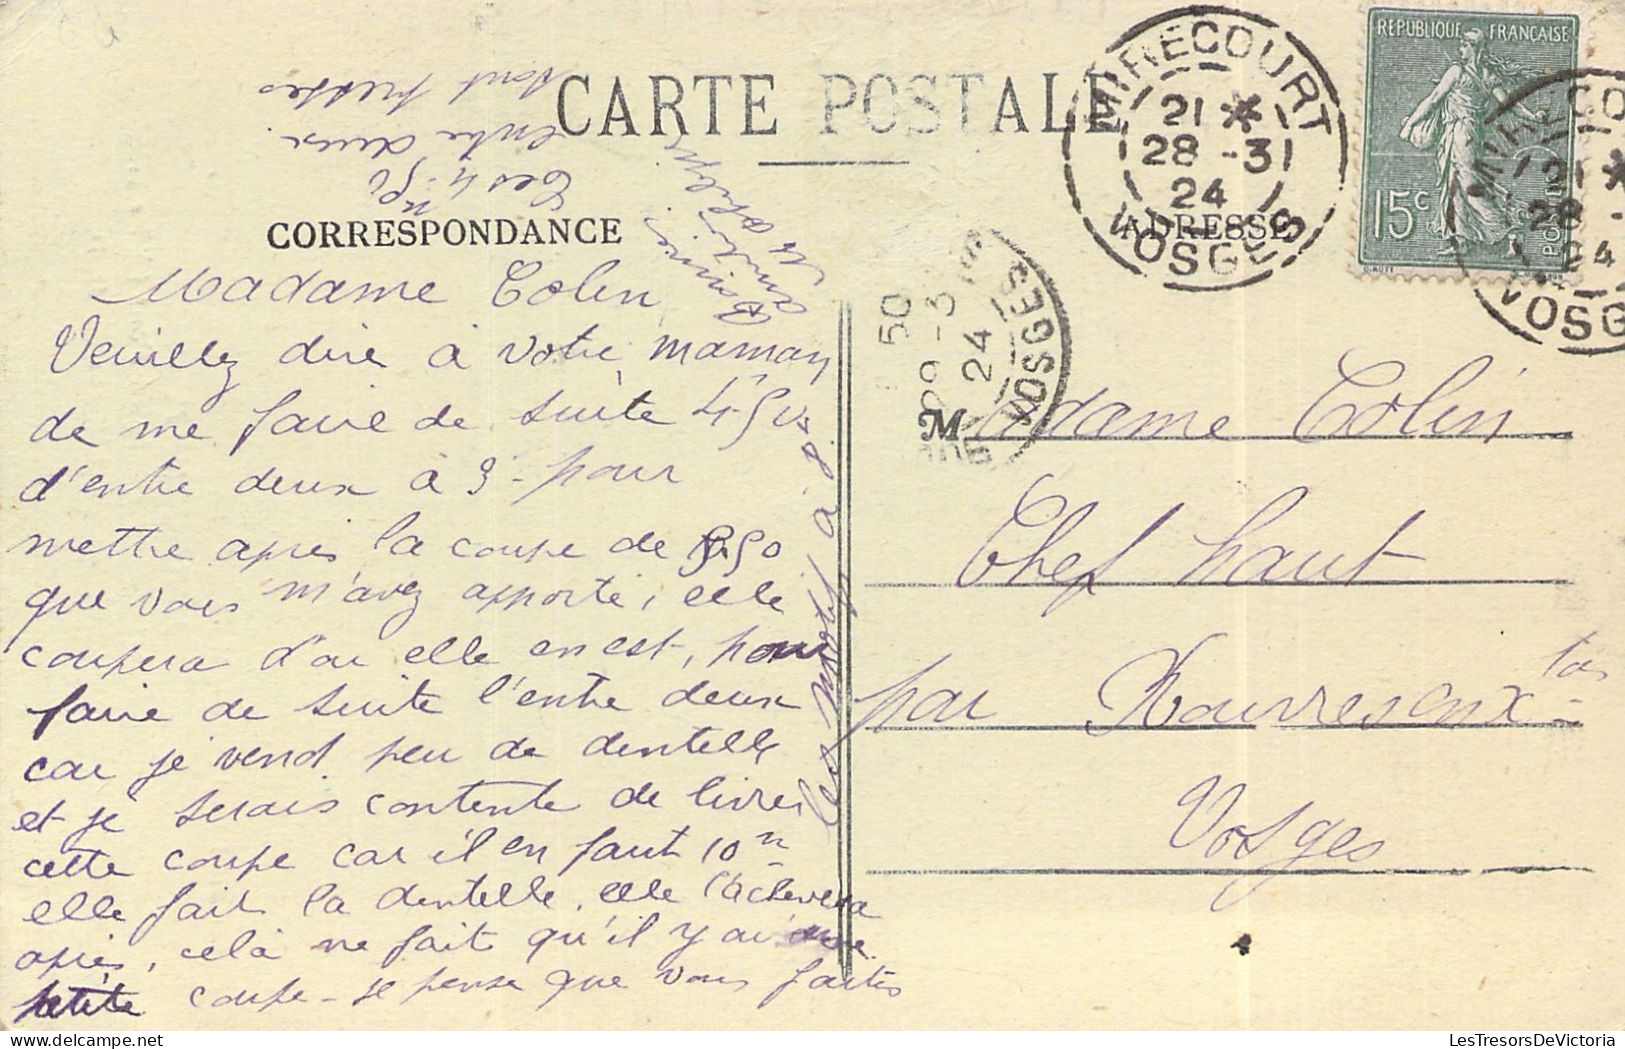 CARTE POSTALE
CORRESPONDANCE
ADRESSE
RÉPUBLIQUE FRANÇAISE
15c
POSTES
MIRECOURT
21 *
28 -3
24
VOSGES
MIRECOURT
21 *
28 -
24
VOSGES
50
-3
24
VOSGES
Madame Colin
Veuillez dire à votre maman
de me faire de suite 4-50
d'entre deux à 3- pour
mettre après la coupe de 50
que vous m'avez apporté, elle
coupera d'ou elle en est, pour
faire de suite l'entre deux
car je vend peu de dentelle
et je serais contente de livrer
cette coupe car il en faut 10m
elle fait la dentelle, elle l'achevera
après, celà ne fait qu'il y ai une
petite coupe - je pense que vous faites
les motifs à 8.
Ces 4m50
entre deux
sont pressés
Bonnes
amitiés
M
Madame Colin
Chef haut
par Rouvres en Xtois
Vosges
LesTresorsDeVictoria